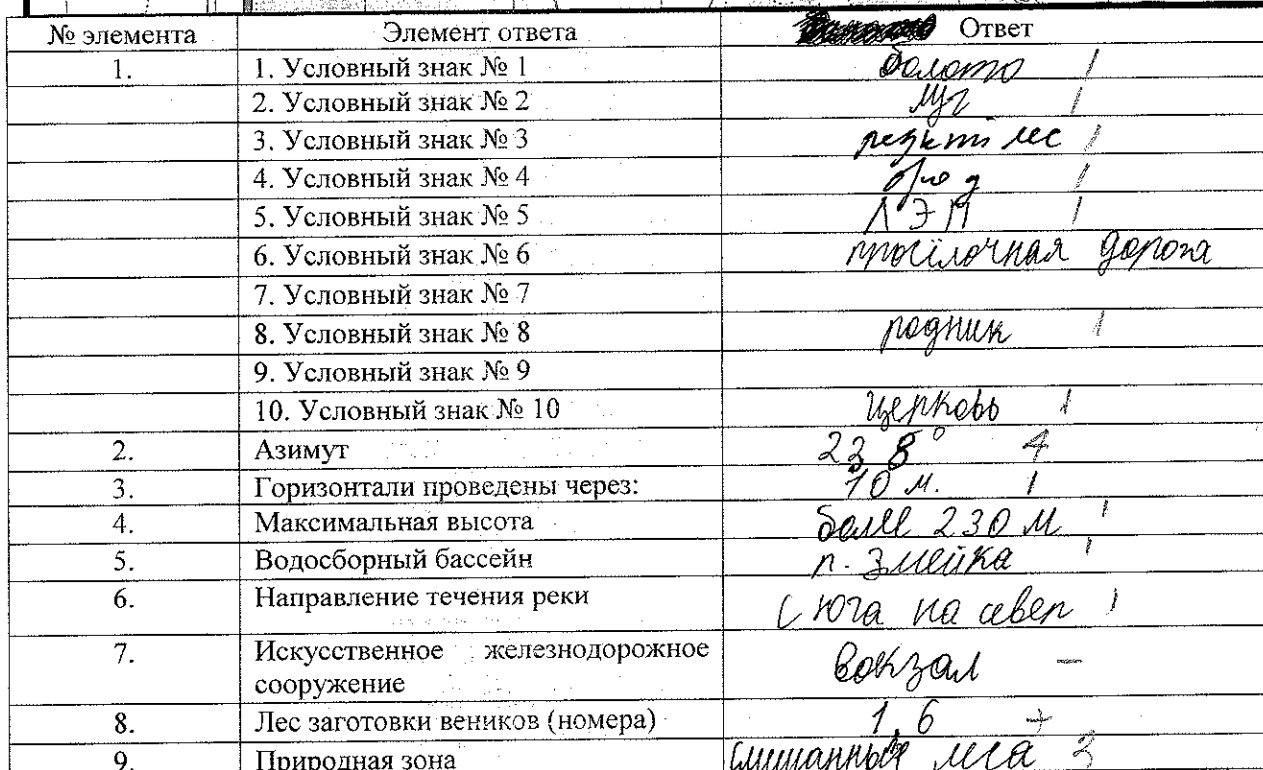 № элемента Элемент ответа Ответ
1. 1. Условный знак № 1 болото /
2. Условный знак № 2 луг /
3. Условный знак № 3 лес /
4. Условный знак № 4 брод /
5. Условный знак № 5 ЛЭП /
6. Условный знак № 6 просёлочная дорога
7. Условный знак № 7
8. Условный знак № 8 родник /
9. Условный знак № 9
10. Условный знак № 10 церковь /
2. Азимут 238° 4
3. Горизонтали проведены через: 10 м. /
4. Максимальная высота более 230 м /
5. Водосборный бассейн р. Змейка /
6. Направление течения реки с юга на север /
7. Искусственное железнодорожное вокзал –
сооружение
8. Лес заготовки веников (номера) 1, 6
9. Природная зона смешанные леса 3